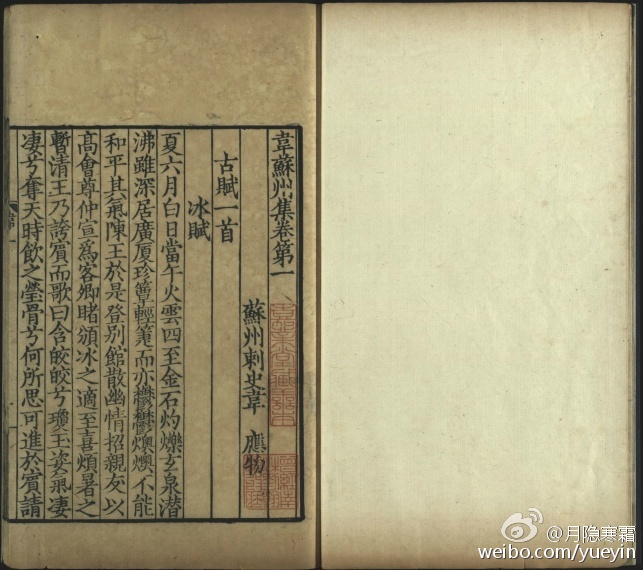 韋蘇州集卷第一
蘇州刺史韋 應物
古賦一首
冰賦
夏六月白日當午火雲四至金石灼爍玄泉潛
沸雖深居廣厦珍簟輕箑而亦鬱鬱燠燠不能
和平其氣陳王於是登别館散幽情招親友以
高會尊仲宣爲客卿睹頒冰之適至喜煩暑之
暫清王乃誇賓而歌曰含皎皎兮瓊玉姿氣凄
凄兮奪天時飲之瑩骨兮何所思可進於賓請
韋一
@月隐寒霜
weibo.com/yueyin